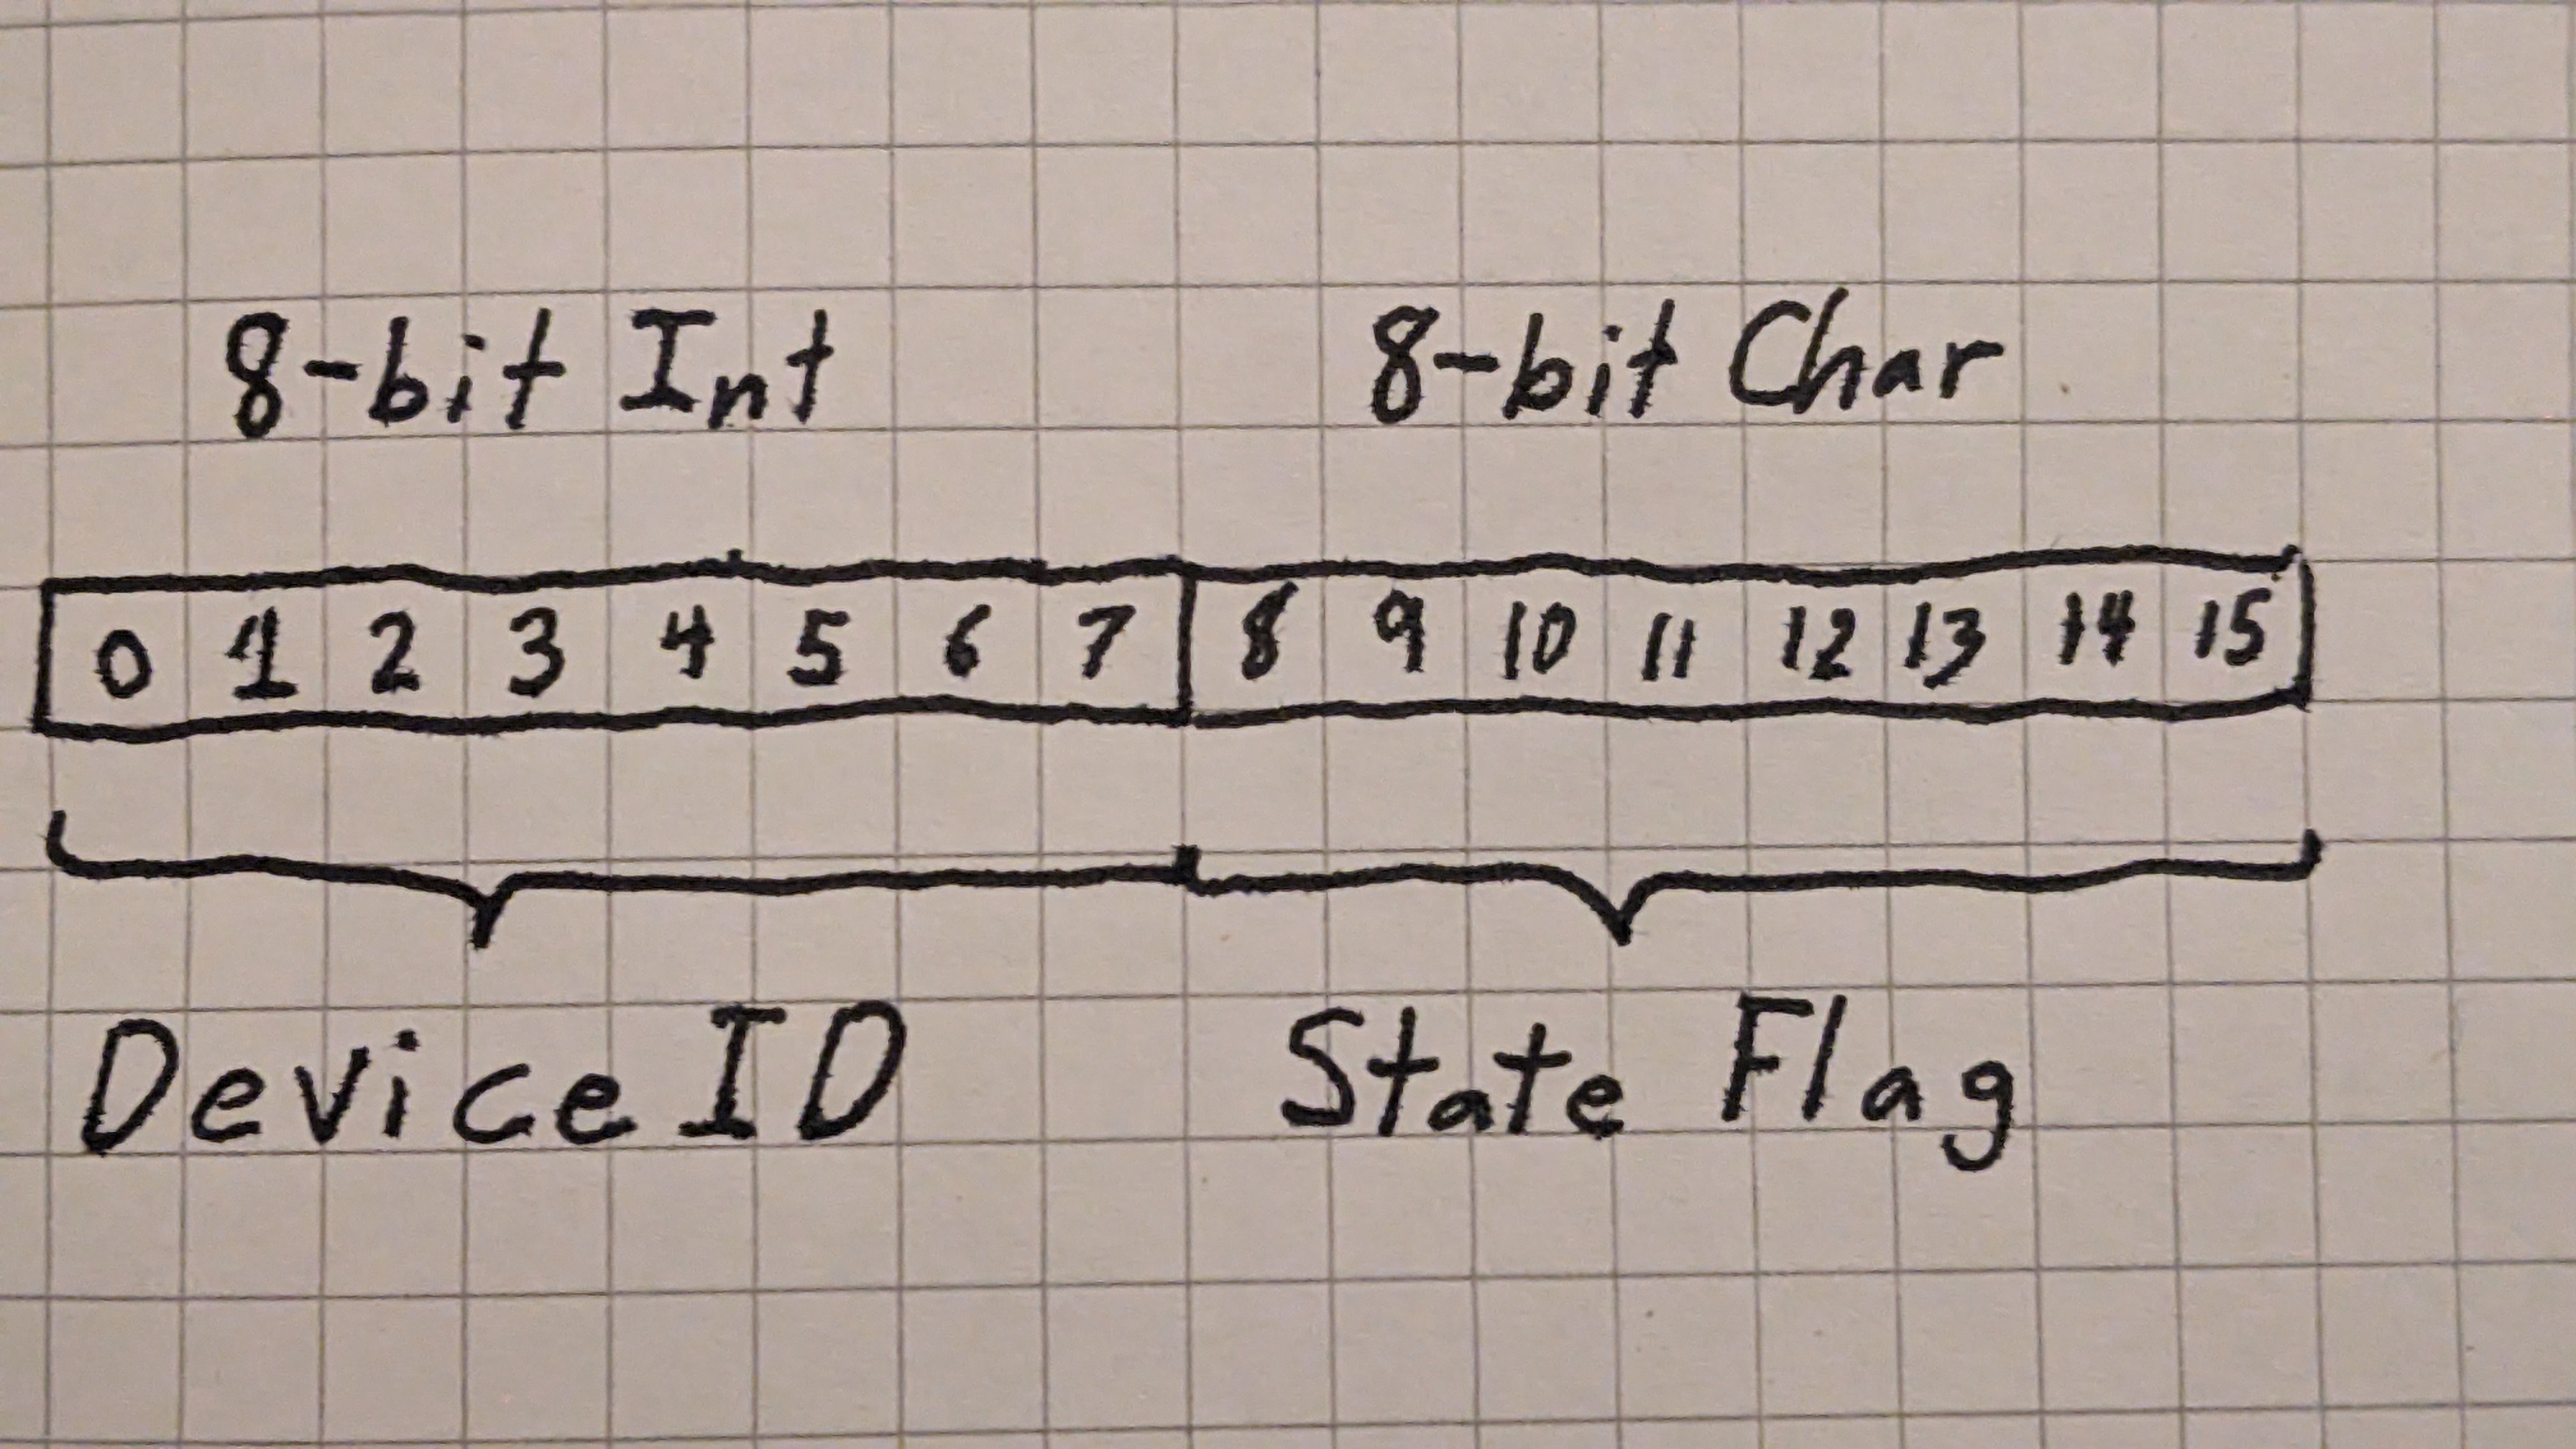 8-bit Int 8-bit Char
0 1 2 3 4 5 6 7 8 9 10 11 12 13 14 15
Device ID State Flag